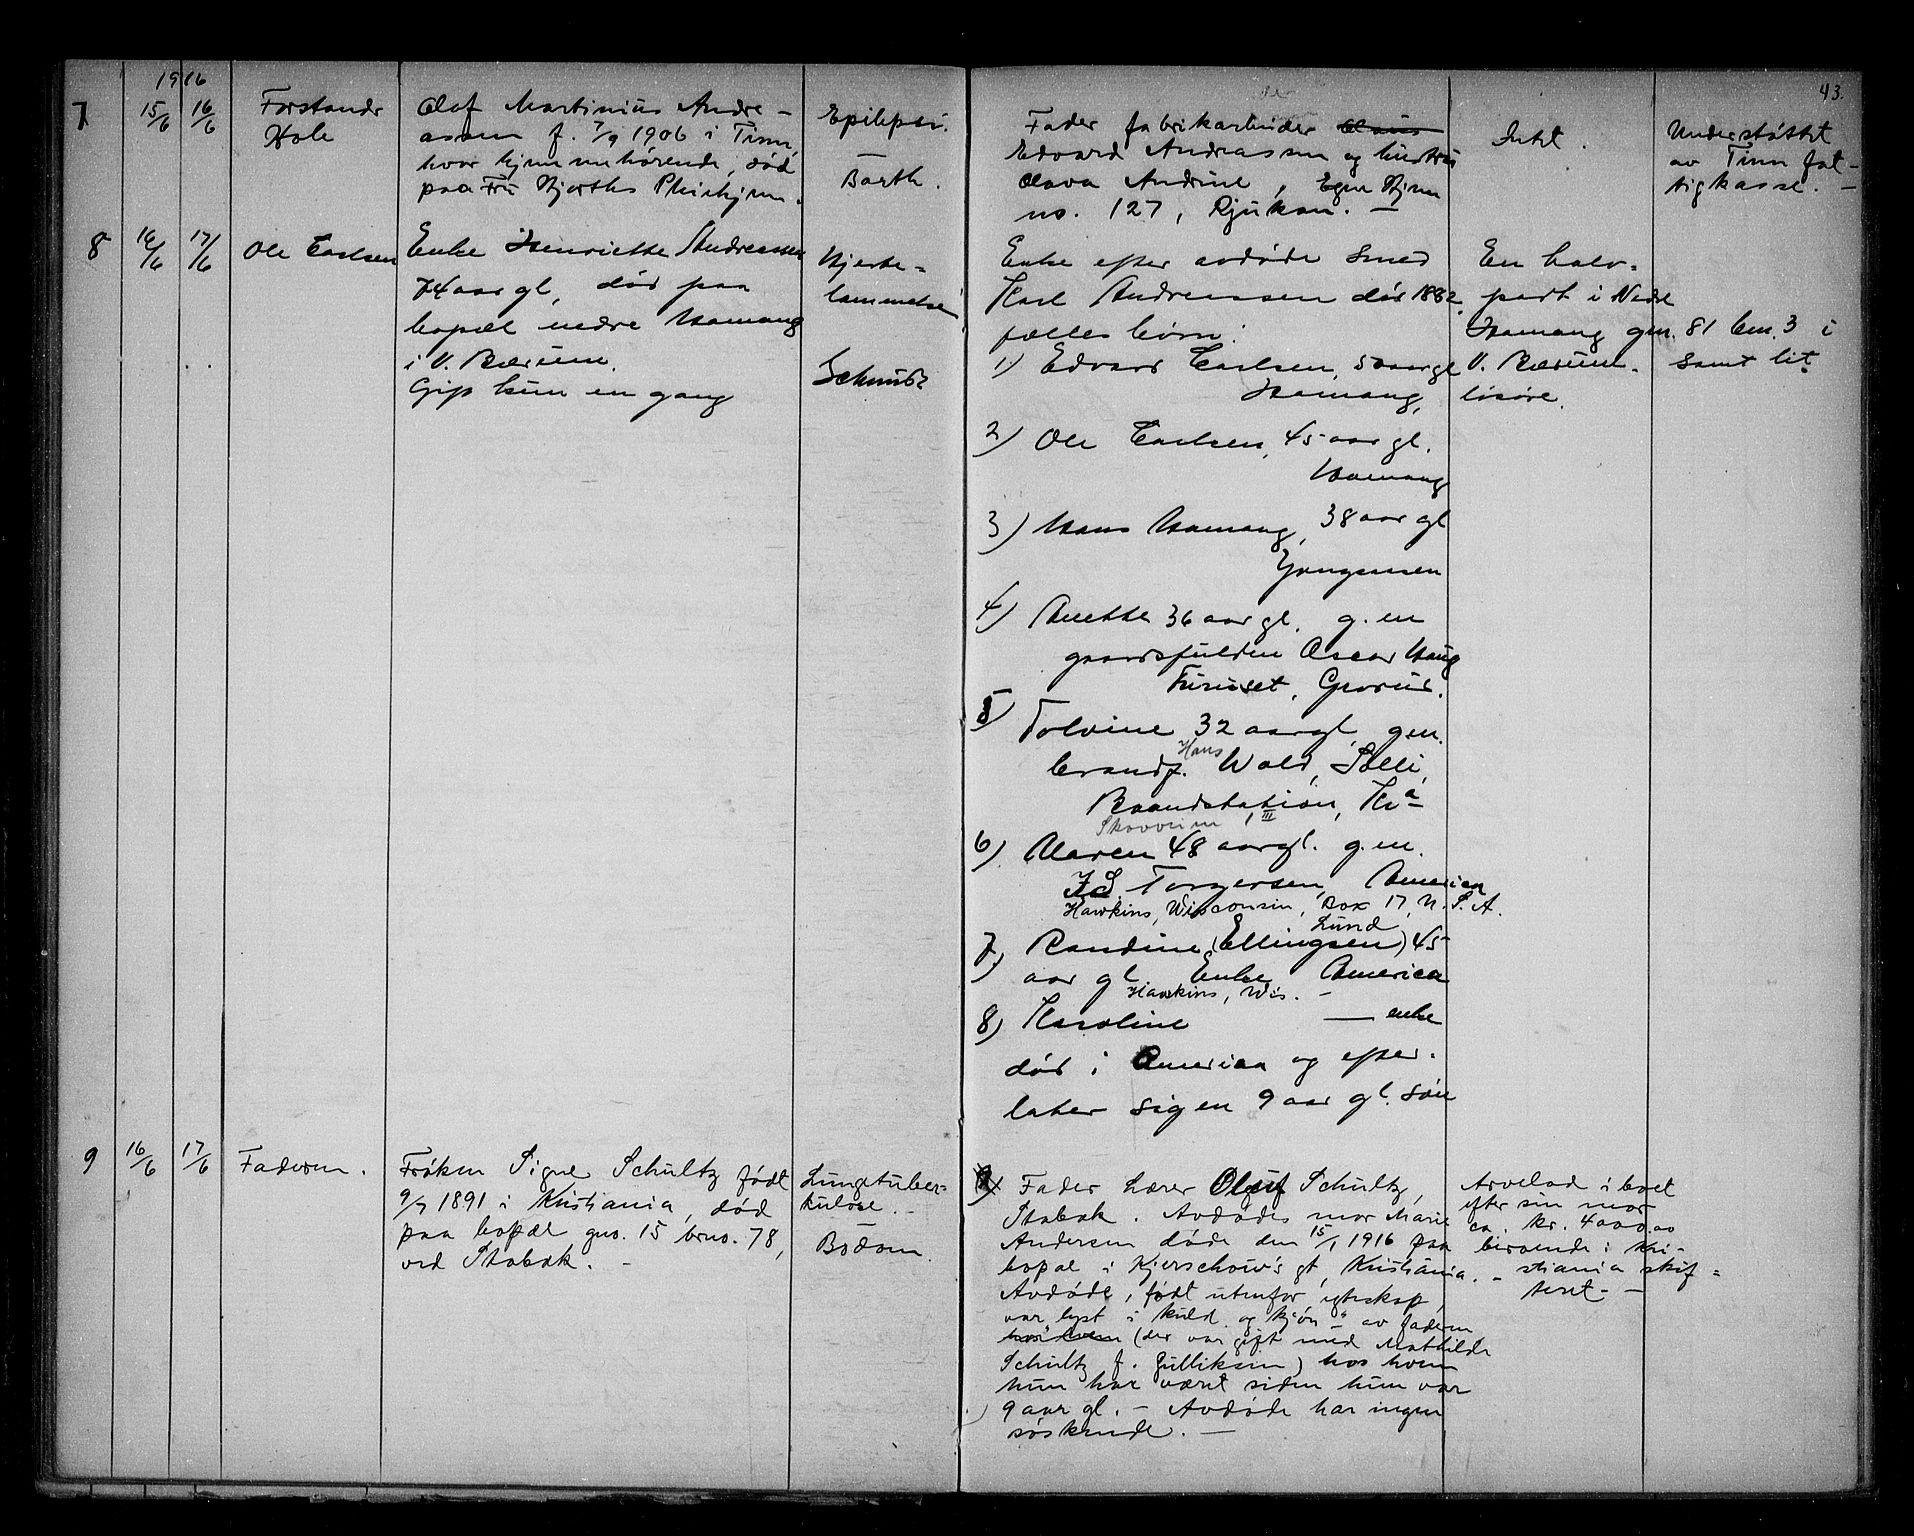 1916
43.
7 15/6 16/6 Forstandr
Hole
Olaf Martinius Andre-
assen f. 7/9 1906 i Tinn,
hvor hjemmehørende, død
paa Fru Hjorths Pleiehjem.
Epilepsi.
Barth.
Fader fabrikarbeider
Edvard Andreassen og hustru
Olava Andrine, Egne Hjem
no. 127, Rjukan. —
Intet.
Understøttet
av Tinn fat-
tigkasse. —
8 16/6 17/6 Ole Carlsen
Enke Henriette Andreassen
74 aar gl, død paa
bopæl nedre Hamang
i V. Bærum.
Gift kun en gang
Hjerte-
lammelse
Schmidt
Enke efter avdøde Smed
Karl Andreassen død 1882
fælles børn:
1) Edvard Carlsen, 50 aar gl
Hamang,
2) Ole Carlsen, 45 aar gl.
Hamang
3) Hans Hamang, 38 aar gl
4) Anette 36 aar gl. g. m
gaardsfuldm Oscar Haug
Furuset, Grorud.
5) Tolvine 32 aar gl, g.m.
brandf. Hans Wold, Solli,
Brandstation, Kra
III
Skovveien
6) Maren 48 aar gl. g.m.
Torgersen, America
Hawkins, Wisconsin, Box 17, U.S.A.
Lund
7) Randine (Ellingsen) 45
aar gl. Enke America
Hawkins, Wis. —
8) Karoline — enke
død i America og efter-
later sig en 9 aar gl. søn
En halv-
part i Nedre
Hamang gn. 81 bn. 3 i
V. Bærum. samt lit
løsøre.
9 16/6 17/6 Faderen.
Frøken Signe Schultz født
9/7 1891 i Kristiania, død
paa bopæl gno. 15 brno. 78,
ved Stabæk. —
Lungetuber-
kulose. —
Bødom.
9) Fader Lærer Oluf Schultz,
Stabæk. Avdødes mor Marie
Andersen døde den 15/1 1916 paa
bopæl i Kjerschow's gt, Kristiania. —
Avdøde, født utenfor egteskap,
var lyst i "kuld og kjøn" av faderen
hos hvem (der var gift med Mathilde
Schultz f. Gulliksen) hos hvem
hun har været siden hun var
9 aar gl. — Avdøde har ingen
søskende. —
Arvelod i boet
efter sin mor
ca. kr. 4000.00
beroende i Kri-
stiania skif-
teret. —